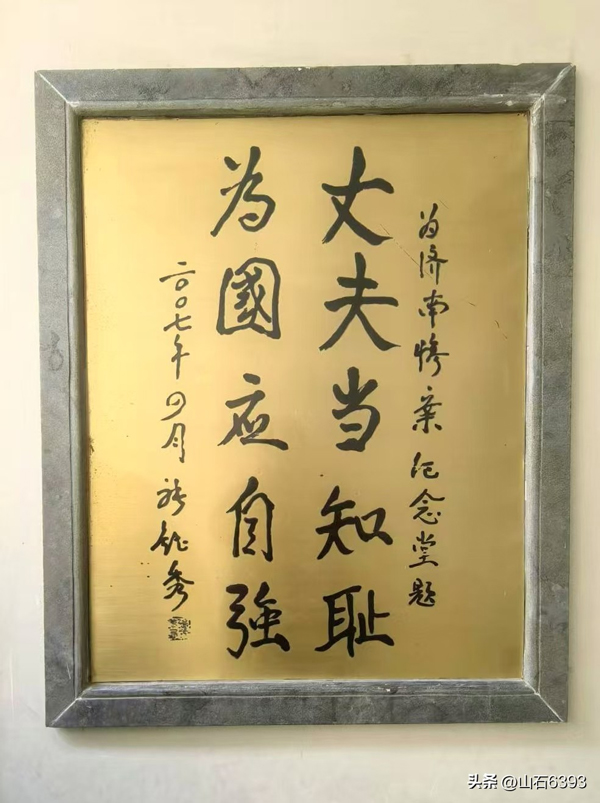 为济南惨案纪念堂题
丈夫当知耻
為國应自強
二〇〇七年四月
头条 @山石6393